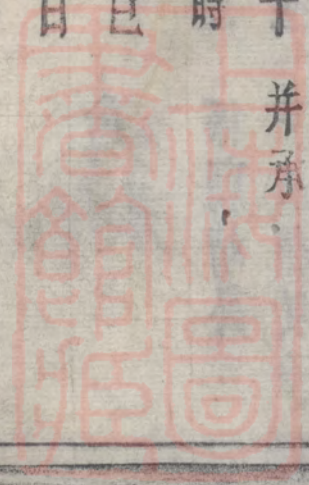 并承
時
已
日
上海圖
書館藏